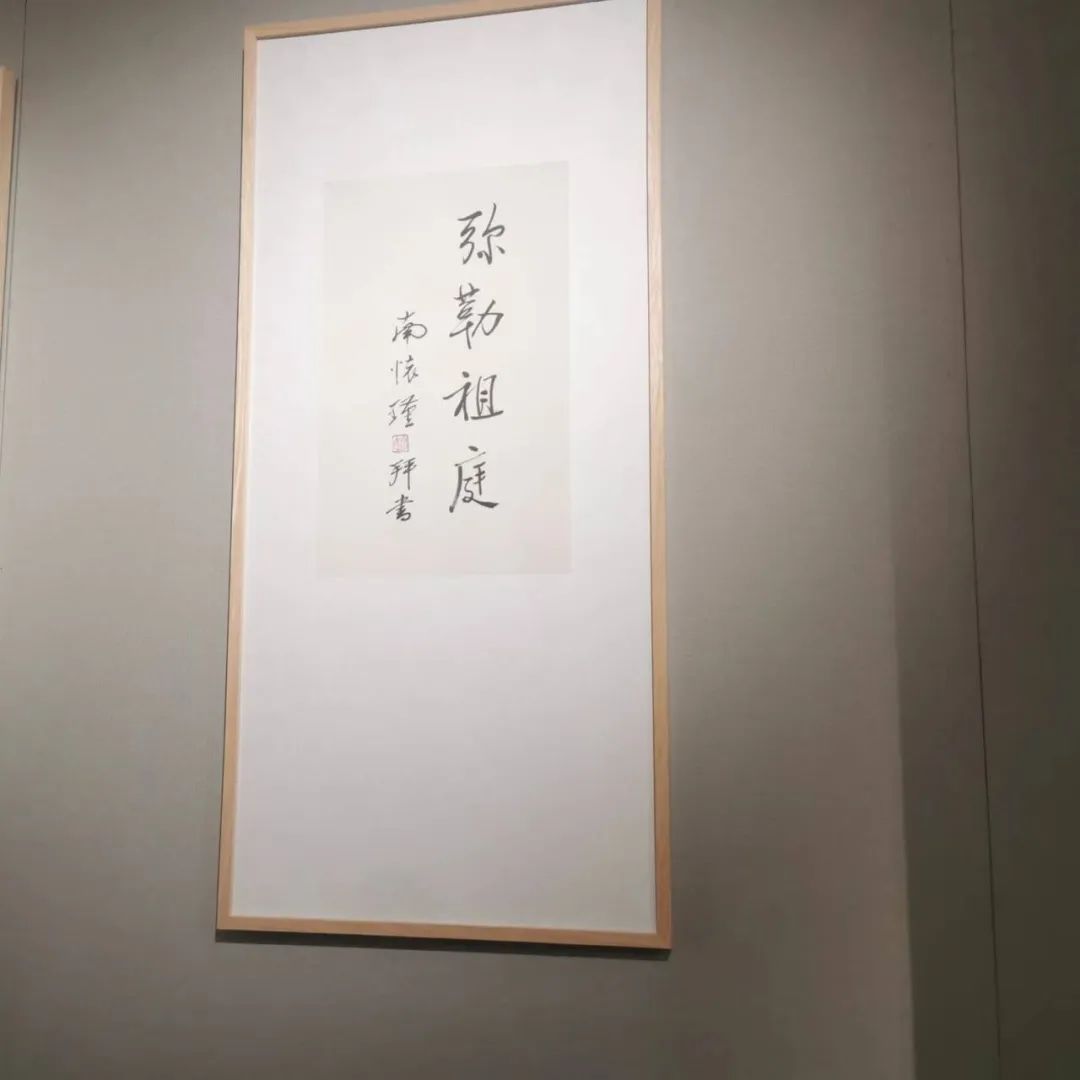 弥勒祖庭
南怀瑾
拜书